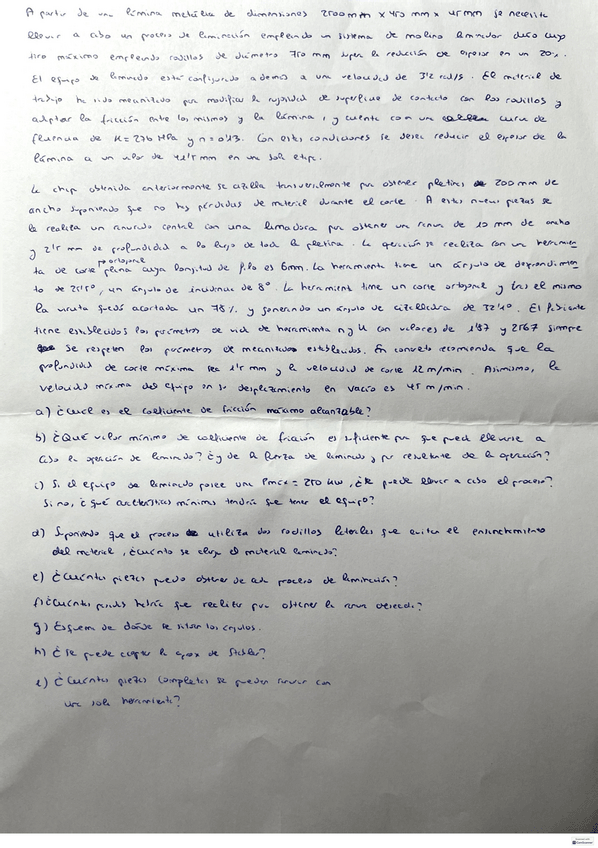 A partir de una lámina metálica de dimensiones 2500 mm x 450 mm x 45 mm se necesita
llevar a cabo un proceso de laminación empleando un sistema de molino laminador duco cuyo
tiro máximo empleando rodillos de diámetro 750 mm supera la reducción de espesor en un 20%.
El equipo de laminado está configurado además a una velocidad de 3'2 rad/s. El material de
trabajo ha sido mecanizado para modificar la rugosidad de superficie de contacto con los rodillos y
adaptar la fricción entre los mismos y la lámina, y cuenta con una curva de
fluencia de K = 276 MPa y n = 0'13. Con estas condiciones se desea reducir el espesor de la
lámina a un valor de mm en un sola etapa.
La chapa obtenida anteriormente se cizalla transversalmente para obtener pletinas de 200 mm de
ancho suponiendo que no hay pérdidas de material durante el corte. A estas nuevas piezas se
le realiza un ranurado central con una limadora para obtener una ranura de 10 mm de ancho
y 2'5 mm de profundidad a lo largo de toda la pletina. La operación se realiza con una herramien
ta de corte plana cuya longitud de filo es 6mm. La herramienta tiene un ángulo de desprendimien
to de , un ángulo de incidencia de 8º. La herramienta tiene un corte ortogonal y tras el mismo
la viruta quedó acortada un 78% y generando un ángulo de cizalladura de 32'40. El fabricante
tiene establecidos los parámetros de vida de herramienta n y K con valores de 1'87 y 2567 siempre
se respeten los parámetros de mecanizado establecidos. En concreto recomienda que la
profundidad de corte máxima sea 1'5 mm y la velocidad de corte 12 m/min. Asimismo, la
velocidad máxima del equipo en su desplazamiento en vacío es 45 m/min.
a) ¿Cuál es el coeficiente de fricción máximo alcanzable?
b) ¿Qué valor mínimo de coeficiente de fricción es suficiente para que pueda llevarse a
cabo la operación de laminado? ¿y de la fuerza de laminado y par resultante de la operación?
c) Si el equipo de laminado posee una Pmax = 250 kW, ¿se puede llevar a cabo el proceso?
Si no, ¿qué características mínimas tendría que tener el equipo?
d) Suponiendo que el proceso utiliza dos rodillos laterales que evitan el ensanchamiento
del material, ¿cuánto se alarga el material laminado?
e) ¿Cuántas piezas puedo obtener de cada proceso de laminación?
f) ¿Cuántas pasadas habría que realizar para obtener la ranura deseada?
g) Esquema de dónde se sitúan los ángulos.
h) ¿Se puede aceptar la aprox de Stabler?
i) ¿Cuántas piezas completas se pueden ranurar con
una sola herramienta?